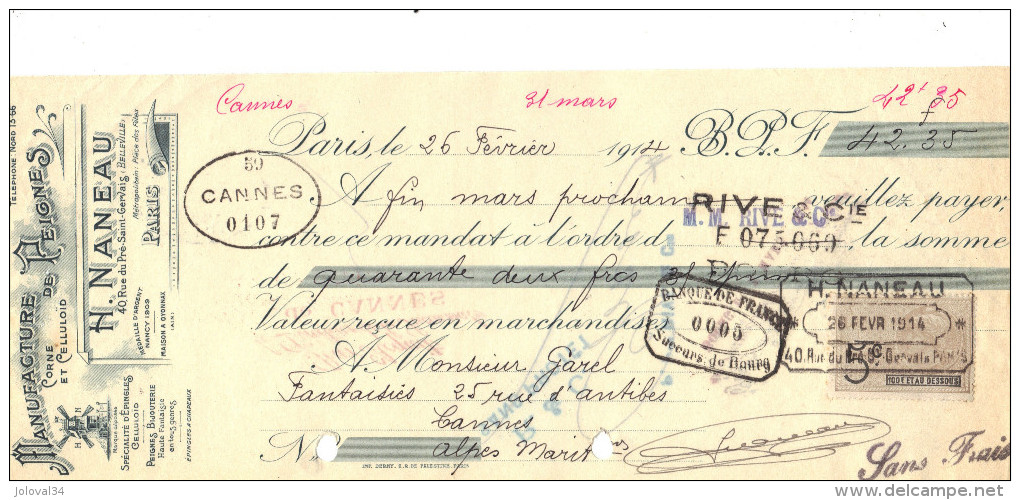 TÉLÉPHONE: NORD 13-66
MANUFACTURE DE PEIGNES
CORNE
ET CELLULOID
H. NANEAU
40, Rue du Pré-Saint-Gervais (BELLEVILLE)
Métropolitain: Place des Fêtes
PARIS
MÉDAILLE D'ARGENT
NANCY 1909
MAISON A OYONNAX
(AIN)
H N
SPÉCIALITÉ D'ÉPINGLES
CELLULOID
PEIGNES BIJOUTERIE
Haute Fantaisie
en tous genres
ÉPINGLES A CHAPEAUX
Cannes 31 mars 42f 35
Paris, le 26 Février 1914 B.P.F. 42.35
59
CANNES
0107
A fin mars prochain veuillez payer,
RIVE & CIE
M.M. RIVE & Cie
contre ce mandat à l'ordre d la somme
F 075069
de quarante deux frcs
Valeur reçue en marchandises
BANQUE DE FRANCE
0005
Succurs. de Bourg
H. NANEAU
* 26 FEVR 1914 *
40, Rue du Pré St-Gervais PARIS
5c
MODE ET AU DESSOUS
A Monsieur Garel
Fantaisies 25 rue d'antibes
Cannes
N° Alpes Maritmes
Sans Frais
© joloval34
delcampe.net